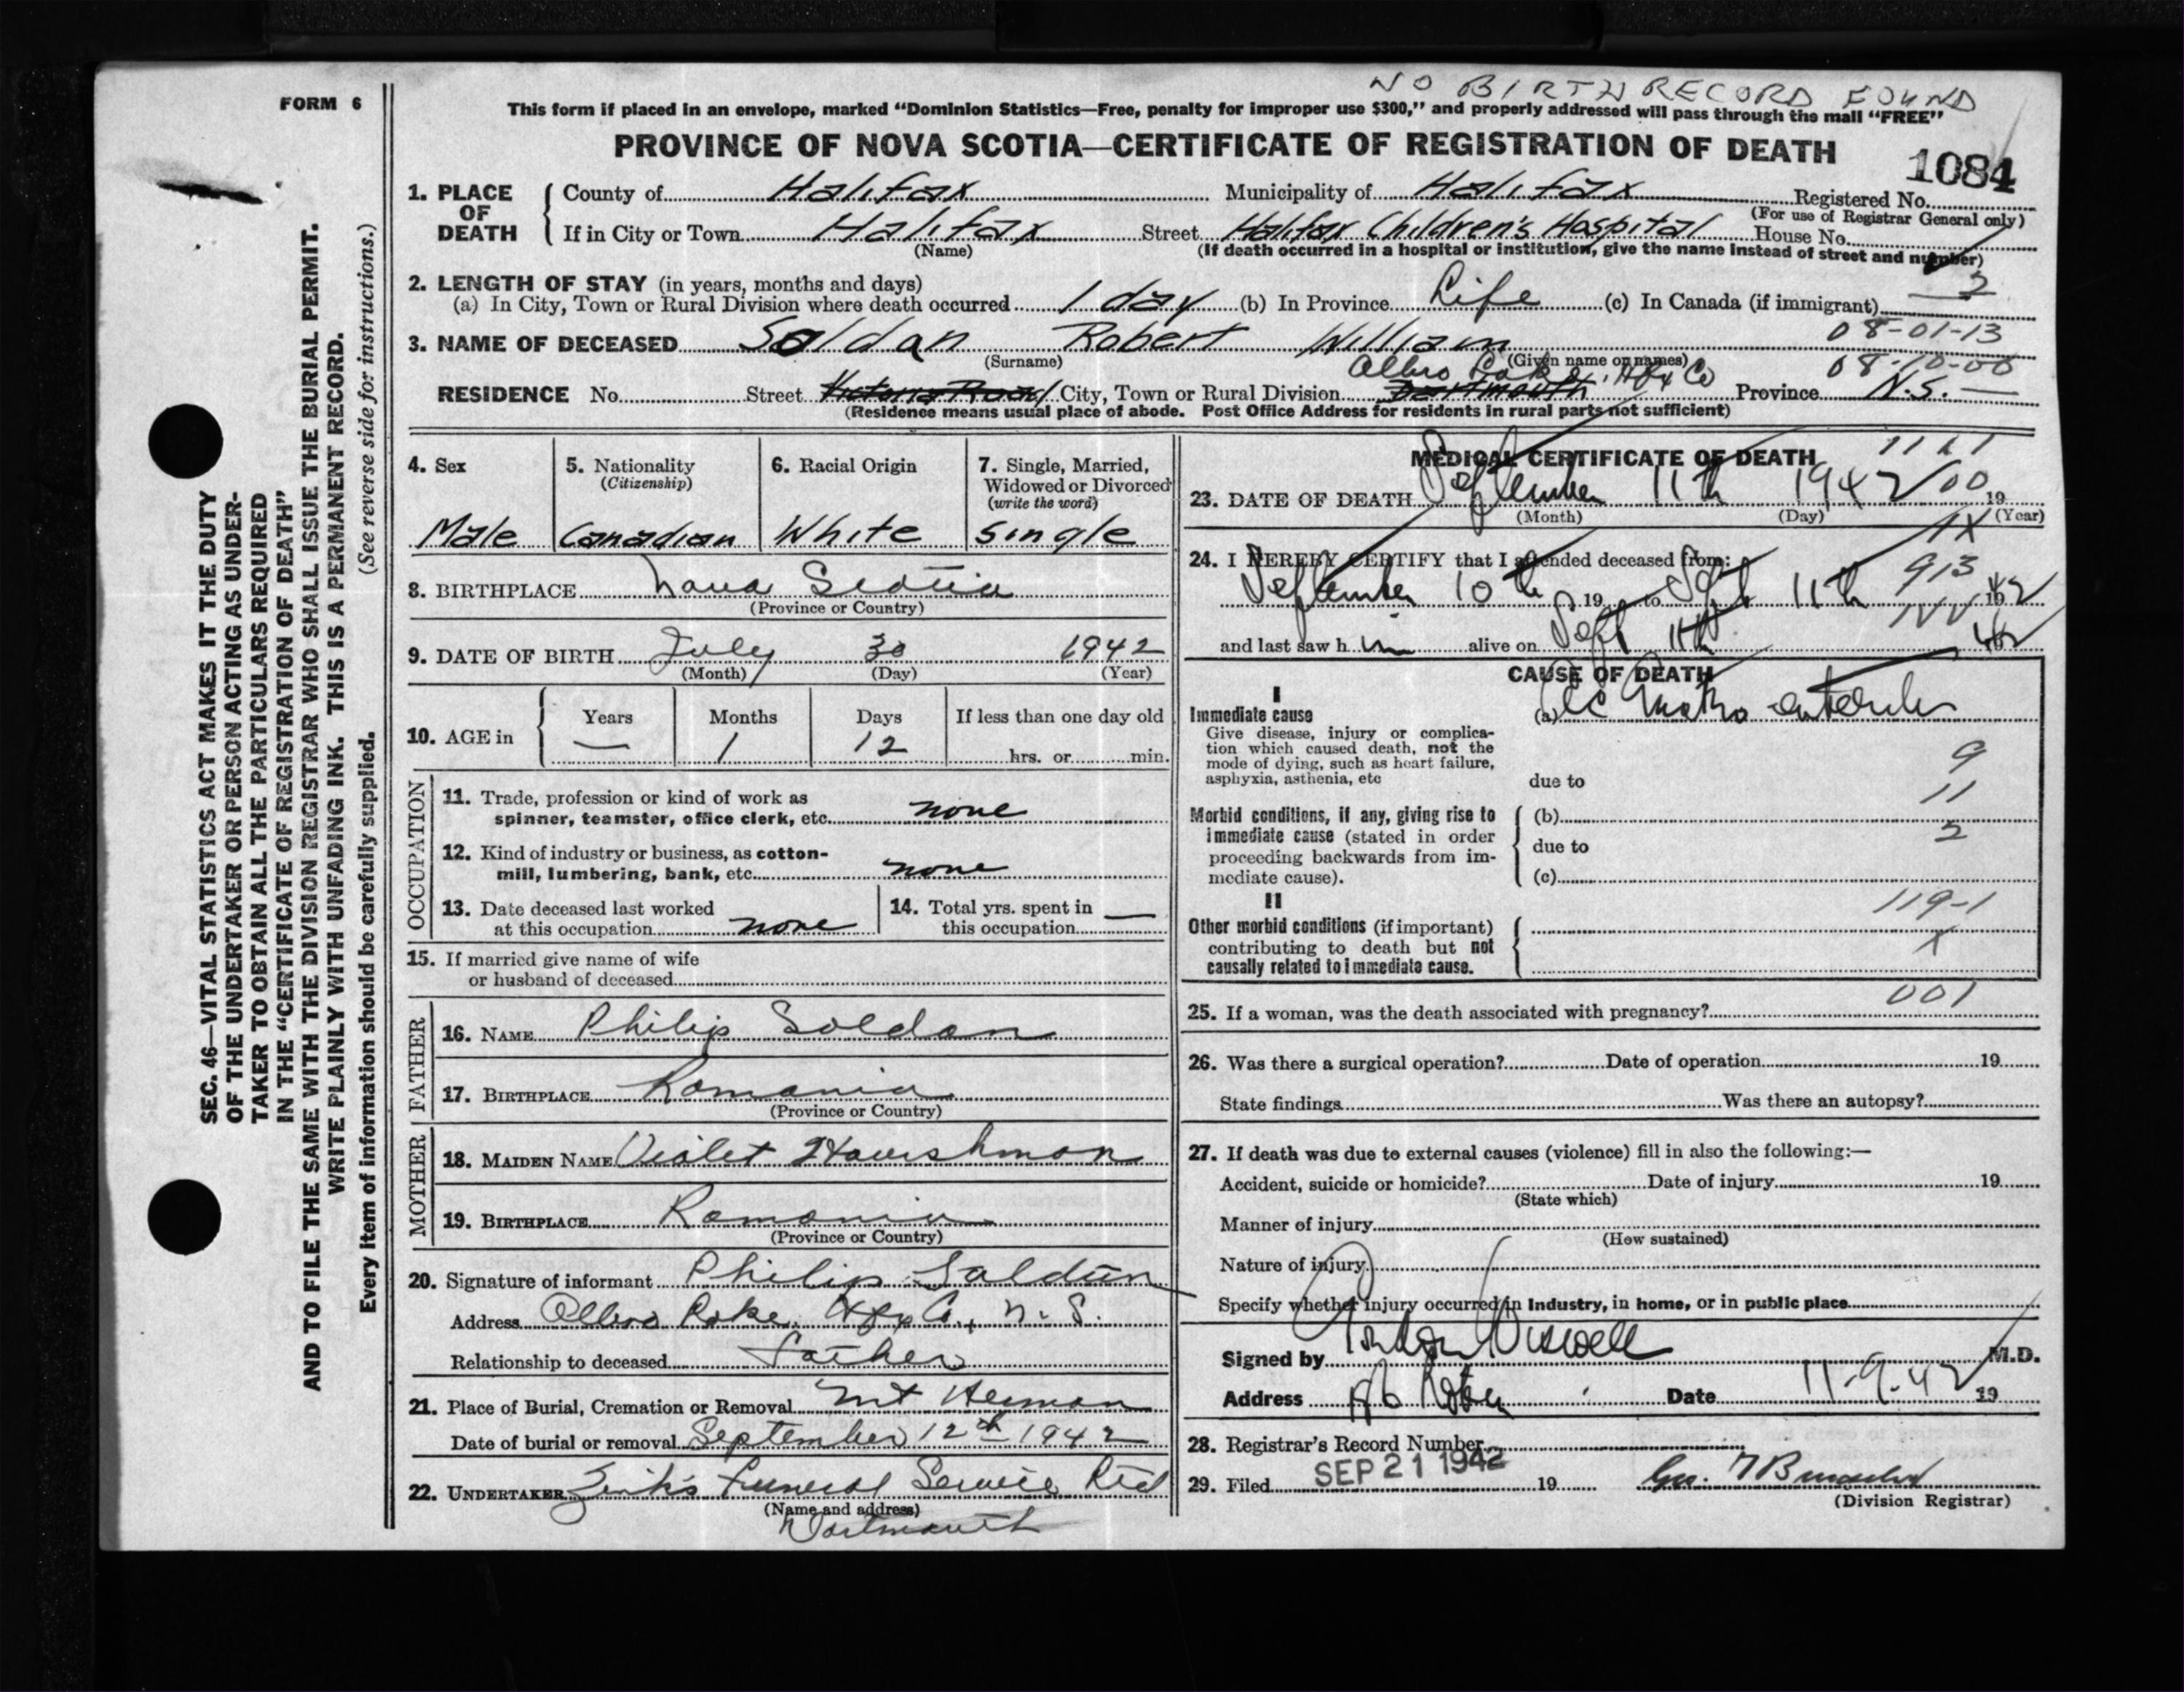 NO BIRTH RECORD FOUND
FORM 6
This form if placed in an envelope, marked "Dominion Statistics—Free, penalty for improper use $300," and properly addressed will pass through the mail "FREE"
PROVINCE OF NOVA SCOTIA—CERTIFICATE OF REGISTRATION OF DEATH
1084
1. PLACE OF DEATH
County of Halifax Municipality of Halifax Registered No.
(For use of Registrar General only)
If in City or Town Halifax Street Halifax Children's Hospital House No.
(Name) (If death occurred in a hospital or institution, give the name instead of street and number)
2. LENGTH OF STAY (in years, months and days)
(a) In City, Town or Rural Division where death occurred 1 day (b) In Province Life (c) In Canada (if immigrant)
2
08-01-13
3. NAME OF DECEASED Soldan Robert William
(Surname) (Given name or names)
Albro Lake, Hfx Co 08-10-00
RESIDENCE No. Street Victoria Road City, Town or Rural Division Dartmouth Province N.S. —
(Residence means usual place of abode. Post Office Address for residents in rural parts not sufficient)
4. Sex
Male
5. Nationality
(Citizenship)
Canadian
6. Racial Origin
White
7. Single, Married,
Widowed or Divorced
(write the word)
Single
8. BIRTHPLACE Nova Scotia
(Province or Country)
9. DATE OF BIRTH July 30 1942
(Month) (Day) (Year)
10. AGE in
Years Months Days If less than one day old
— 1 12 hrs. or min.
OCCUPATION
11. Trade, profession or kind of work as
spinner, teamster, office clerk, etc. none
12. Kind of industry or business, as cotton-
mill, lumbering, bank, etc. none
13. Date deceased last worked
at this occupation none
14. Total yrs. spent in
this occupation —
15. If married give name of wife
or husband of deceased
FATHER
16. NAME Philip Soldan
17. BIRTHPLACE Romania
(Province or Country)
MOTHER
18. MAIDEN NAME Violet
19. BIRTHPLACE Romania
(Province or Country)
20. Signature of informant Philip Soldan
Address Albro Lake, Hfx Co., N. S.
Relationship to deceased Father
21. Place of Burial, Cremation or Removal Mt Hermon
Date of burial or removal September 12th 1942
22. UNDERTAKER Zink's Funeral Service Ltd
(Name and address)
Dartmouth
MEDICAL CERTIFICATE OF DEATH
23. DATE OF DEATH September 11th 1942 00 19
(Month) (Day) (Year)
24. I HEREBY CERTIFY that I attended deceased from:
913
September 10th 19 to Sept 11th 1942
and last saw h im alive on Sept 11th 42
CAUSE OF DEATH
I
Immediate cause
Give disease, injury or complica-
tion which caused death, not the
mode of dying, such as heart failure,
asphyxia, asthenia, etc
(a) Gastro enteritis
9
due to
11
Morbid conditions, if any, giving rise to
immediate cause (stated in order
proceeding backwards from im-
mediate cause).
(b)
2
due to
(c)
II
119-1
Other morbid conditions (if important)
contributing to death but not
causally related to immediate cause.
X
001
25. If a woman, was the death associated with pregnancy?
26. Was there a surgical operation? Date of operation 19
State findings Was there an autopsy?
27. If death was due to external causes (violence) fill in also the following:—
Accident, suicide or homicide? Date of injury 19
(State which)
Manner of injury
(How sustained)
Nature of injury
Specify whether injury occurred in industry, in home, or in public place
Signed by Gordon Wiswell M.D.
Address Date 11-9-42 19
28. Registrar's Record Number
29. Filed SEP 21 1942 19
(Division Registrar)
SEC. 46—VITAL STATISTICS ACT MAKES IT THE DUTY
OF THE UNDERTAKER OR PERSON ACTING AS UNDER-
TAKER TO OBTAIN ALL THE PARTICULARS REQUIRED
IN THE "CERTIFICATE OF REGISTRATION OF DEATH"
AND TO FILE THE SAME WITH THE DIVISION REGISTRAR WHO SHALL ISSUE THE BURIAL PERMIT.
WRITE PLAINLY WITH UNFADING INK. THIS IS A PERMANENT RECORD.
Every item of information should be carefully supplied. (See reverse side for instructions.)